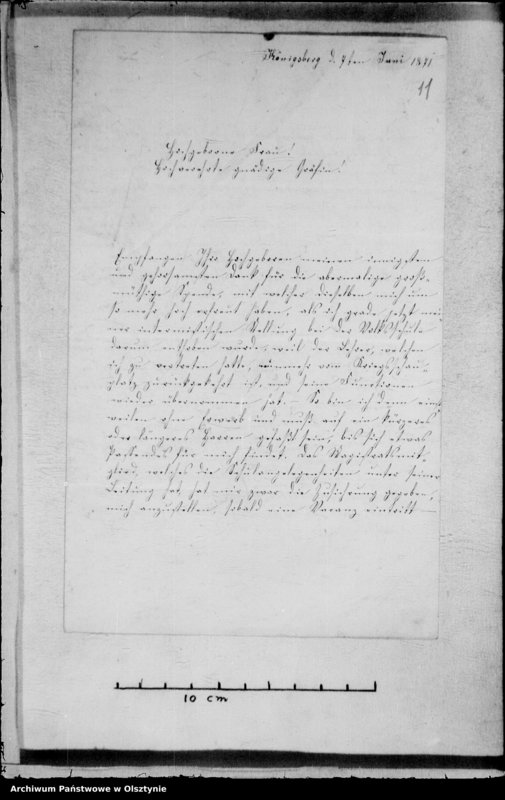 Königsberg d. 7ten Juni 1871
11
Hochgeborne Frau!
Hochverehrte gnädige Gräfin!
Empfangen Ihro Hochgeboren meinen innigsten
und gehorsamsten Dank für die abermalige groß-
müthige Spende, mit welcher dieselben mich um
so mehr hoch erfreut haben, als ich grade jetzt mei-
ner interimistischen Stellung bei der Volksschule
darum enthoben wurde, weil der Lehrer, welchen
ich zu vertreten hatte, nunmehr vom Kriegsschau-
platz zurückgekehrt ist und seine Funktionen
wieder übernommen hat. So bin ich denn einst-
weilen ohne Erwerb und muß auf ein kürzeres
oder längeres Harren gefaßt sein, bis sich etwas
Passendes für mich findet. Das Magistratsmit-
glied, welches die Schulangelegenheiten unter seiner
Leitung hat, hat mir zwar die Zusicherung gegeben,
mich anzustellen, sobald eine Vacanz eintritt
10 cm
Archiwum Państwowe w Olsztynie